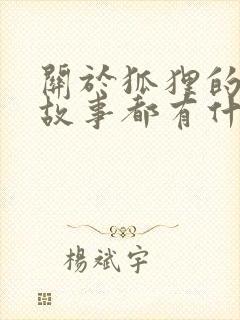 關於狐狸的
故事都有什
楊斌宇